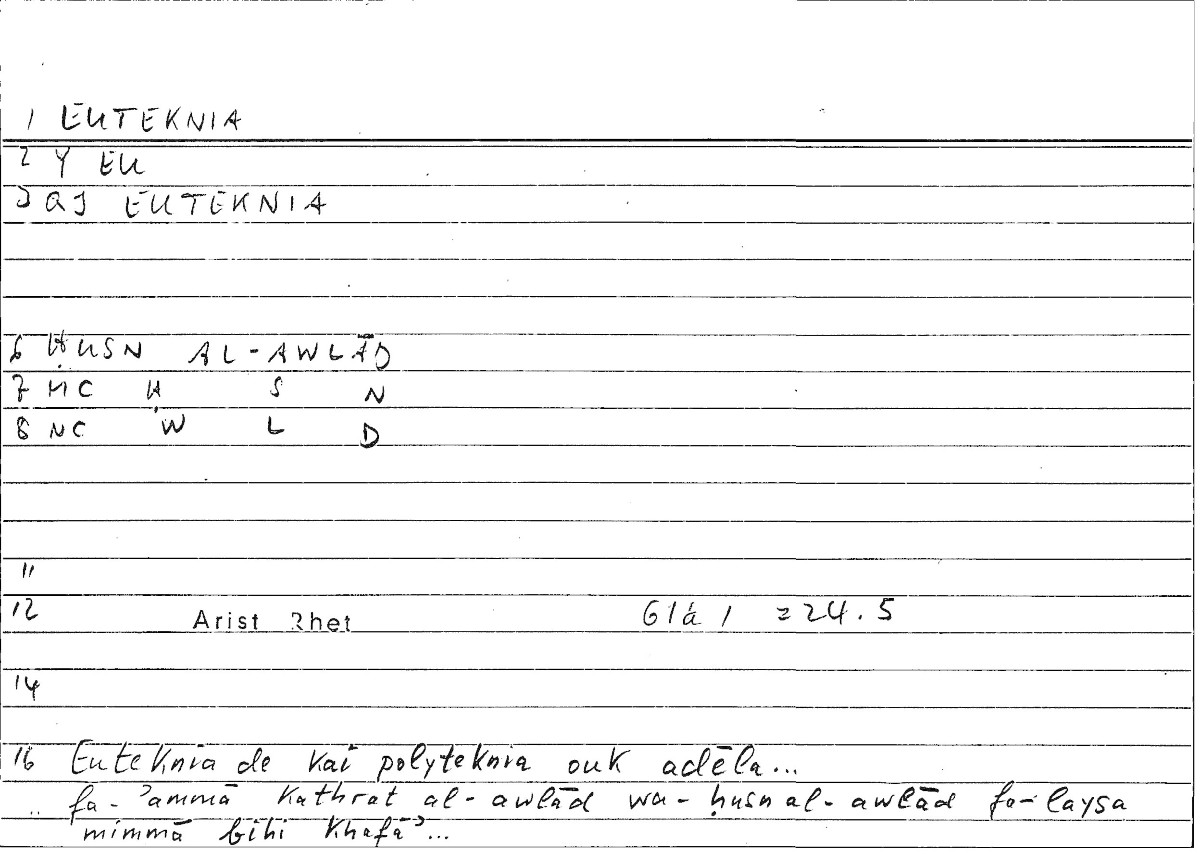 1 EUTEKNIA
2 Y EU
3 QJ EUTEKNIA
6 ḤUSN AL-AWLĀD
7 MC Ḥ S N
8 NC W L D
11
12 Arist Rhet 61a 1 =24.5
14
16 Euteknia de kai polyteknia ouk adēla...
.. fa-ʾammā kathrat al-awlād wa-ḥusn al-awlād fa-laysa
mimmā bihi khafāʾ...